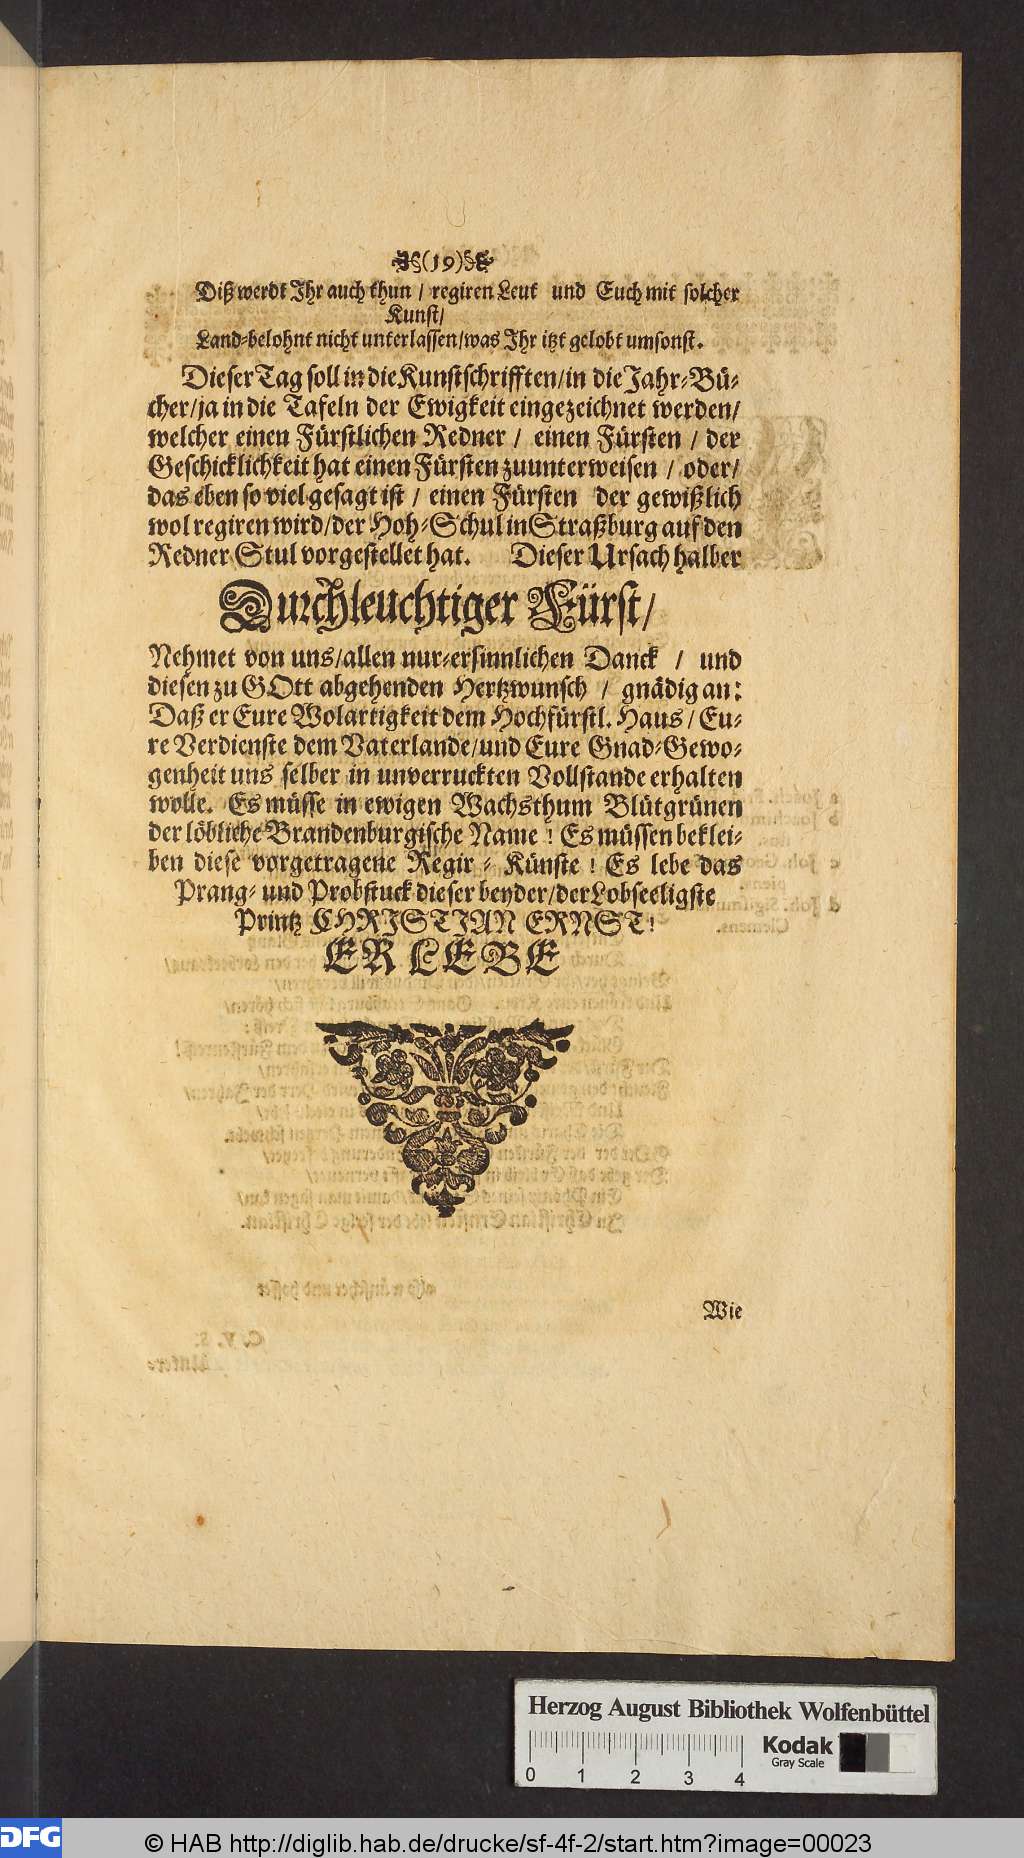 (19)
Diß werdt Ihr auch thun / regiren Leut und Euch mit solcher
Kunst /
Land-belohnt nicht unterlassen / was Ihr itzt gelobt umsonst.
Dieser Tag soll in die Kunstschrifften / in die Jahr-Bü-
cher / ja in die Tafeln der Ewigkeit eingezeichnet werden /
welcher einen Fürstlichen Redner / einen Fürsten / der
Geschicklichkeit hat einen Fürsten zuunterweisen / oder /
das eben so viel gesagt ist / einen Fürsten der gewißlich
wol regiren wird / der Hoh-Schul in Straßburg auf den
Redner Stul vorgestellet hat. Dieser Ursach halber
Durchleuchtiger Fürst /
Nehmet von uns / allen nur-ersinnlichen Danck / und
diesen zu GOtt abgehenden Hertzwunsch / gnädig an:
Daß er Eure Wolartigkeit dem Hochfürstl. Haus / Eu-
re Verdienste dem Vaterlande / und Eure Gnad-Gewo-
genheit uns selber in unverruckten Vollstande erhalten
wolle. Es müsse in ewigen Wachsthum Blütgrünen
der löbliche Brandenburgische Name! Es müssen beklei-
ben diese vorgetragene Regir-Künste! Es lebe das
Prang- und Probstuck dieser beyder / der Lobseeligste
Printz CHRISTIAN ERNST!
ER LEBE
Wie
Herzog August Bibliothek Wolfenbüttel
Kodak
Gray Scale
0 1 2 3 4
DFG
© HAB http://diglib.hab.de/drucke/sf-4f-2/start.htm?image=00023